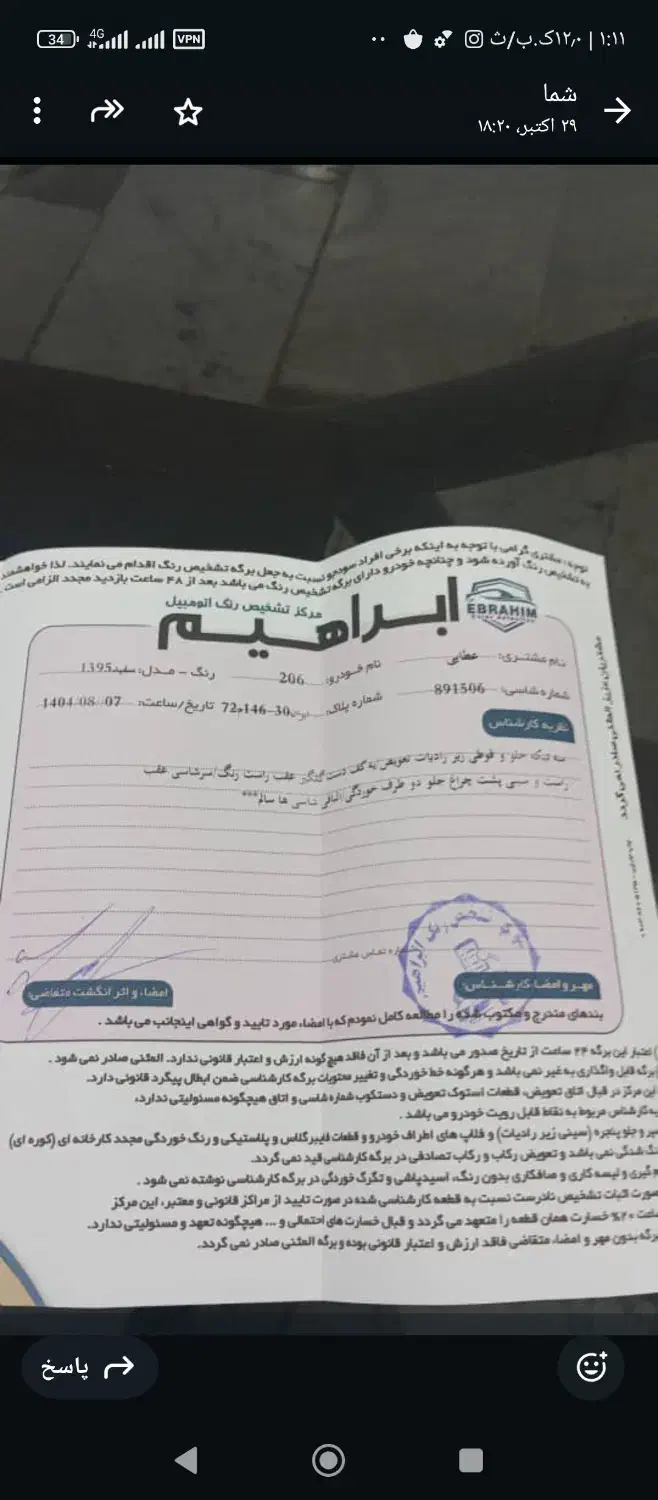 ۱:۱۱ | ۱۲٫۰ک.ب/ث
4G
VPN
34
شما
۲۹ اکتبر، ۱۸:۲۰
توجه: مشتری گرامی با توجه به اینکه برخی افراد سودجو نسبت به جعل برگه تشخیص رنگ اقدام می نمایند. لذا خواهشمند
به تشخیص رنگ آورده شود و چنانچه خودرو دارای برگه تشخیص رنگ می باشد بعد از ۴۸ ساعت بازدید مجدد الزامی است.
مرکز تشخیص رنگ اتومبیل
ابراهیم
EBRAHIM
نام مشتری: عطایی
نام خودرو: 206
رنگ – مدل: سفید1395
شماره شاسی: 891506
شماره پلاک: ایران30-146م72
تاریخ/ساعت: 1404/08/07
نظریه کارشناس
سه تیکه جلو و قوطی زیر رادیات تعویض
عقب راست رنگ/سرشاسی عقب
راست و سینی پشت چراغ جلو دو طرف خوردگی/الباقی شاسی ها سالم***
شماره تماس مشتری
مهر و امضا کارشناس:
امضاء و اثر انگشت متقاضی:
بندهای مندرج و مکتوب شده را مطالعه کامل نمودم که با امضاء مورد تایید و گواهی اینجانب می باشد .
اعتبار این برگه ۲۴ ساعت از تاریخ صدور می باشد و بعد از آن فاقد هیچ گونه ارزش و اعتبار قانونی ندارد. المثنی صادر نمی شود .
برگه قابل واگذاری به غیر نمی باشد و هرگونه خط خوردگی و تغییر محتویات برگه کارشناسی ضمن ابطال پیگرد قانونی دارد.
این مرکز در قبال اتاق تعویض، قطعات استوک تعویض و دستکوب شماره شاسی و اتاق هیچگونه مسئولیتی ندارد،
به کارشناس مربوط به نقاط قابل رویت خودرو می باشد .
سپر و جلو پنجره (سینی زیر رادیات) و فلاپ های اطراف خودرو و قطعات فایبرگلاس و پلاستیکی و رنگ خوردگی مجدد کارخانه ای (کوره ای)
نگ شدگی نمی باشد و تعویض رکاب و رکاب تصادفی در برگه کارشناسی قید نمی گردد.
گیری و لیسه کاری و صافکاری بدون رنگ، اسیدپاشی و تگرگ خوردگی در برگه کارشناسی نوشته نمی شود .
صورت اثبات تشخیص نادرست نسبت به قطعه کارشناسی شده در صورت تایید از مراکز قانونی و معتبر، این مرکز
۲۰% خسارت همان قطعه را متعهد می گردد و قبال خسارت های احتمالی و ... هیچگونه تعهد و مسئولیتی ندارد.
برگه بدون مهر و امضاء متقاضی فاقد ارزش و اعتبار قانونی بوده و برگه المثنی صادر نمی گردد.
پاسخ